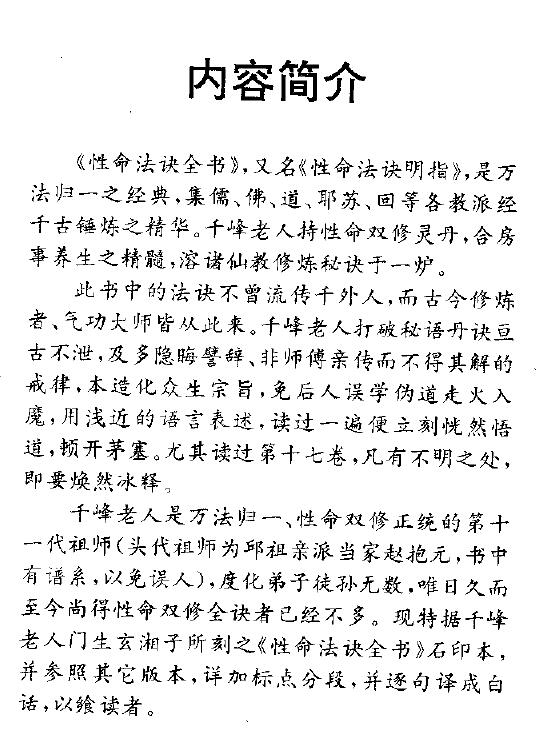 内容简介
《性命法诀全书》,又名《性命法诀明指》,是万
法归一之经典,集儒、佛、道、耶苏、回等各教派经
千古锤炼之精华。千峰老人持性命双修灵丹,合房
事养生之精髓,溶诸仙教修炼秘诀于一炉。
此书中的法诀不曾流传千外人,而古今修炼
者、气功大师皆从此来。千峰老人打破秘语丹诀亘
古不泄,及多隐晦譬辞、非师傅亲传而不得其解的
戒律,本造化众生宗旨,免后人误学伪道走火入
魔,用浅近的语言表述,读过一遍便立刻恍然悟
道,顿开茅塞。尤其读过第十七卷,凡有不明之处,
即要焕然冰释。
千峰老人是万法归一、性命双修正统的第十
一代祖师(头代祖师为邱祖亲派当家赵抱元,书中
有谱系,以免误人),度化弟子徒孙无数,唯日久而
至今尚得性命双修全诀者已经不多。现特据千峰
老人门生玄湘子所刻之《性命法诀全书》石印本,
并参照其它版本,详加标点分段,并逐句译成白
话,以飨读者。